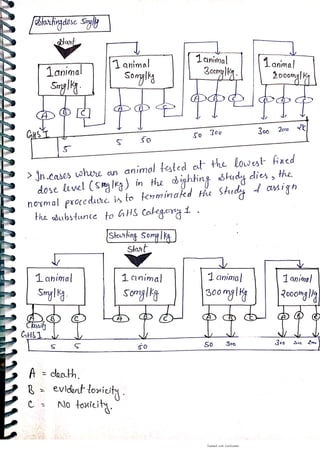 Starting dose 5mg/kg
Start
1 animal 5mg/kg.
1 animal 50mg/kg
1 animal 300mg/kg.
1 animal 2000mg/kg
A B C
A B C
A B C
A B C
GHS 1
5 5 50 50 300 300 2000
> In cases where an animal tested at the lowest fixed
dose level (5mg/kg) in the sighting study dies, the
normal procedure is to terminated the study & assign
the substance to GHS Category 1.
Starting 50mg/kg
Start
1 animal 5mg/kg.
1 animal 50mg/kg.
1 animal 300mg/kg
1 animal 2000mg/kg
A B C
A B C
A B C
A B C
Classify
GHS 1
5 5 50 50 300 300
A = death.
B = evident toxicity.
C = No toxicity.
Scanned with CamScanner